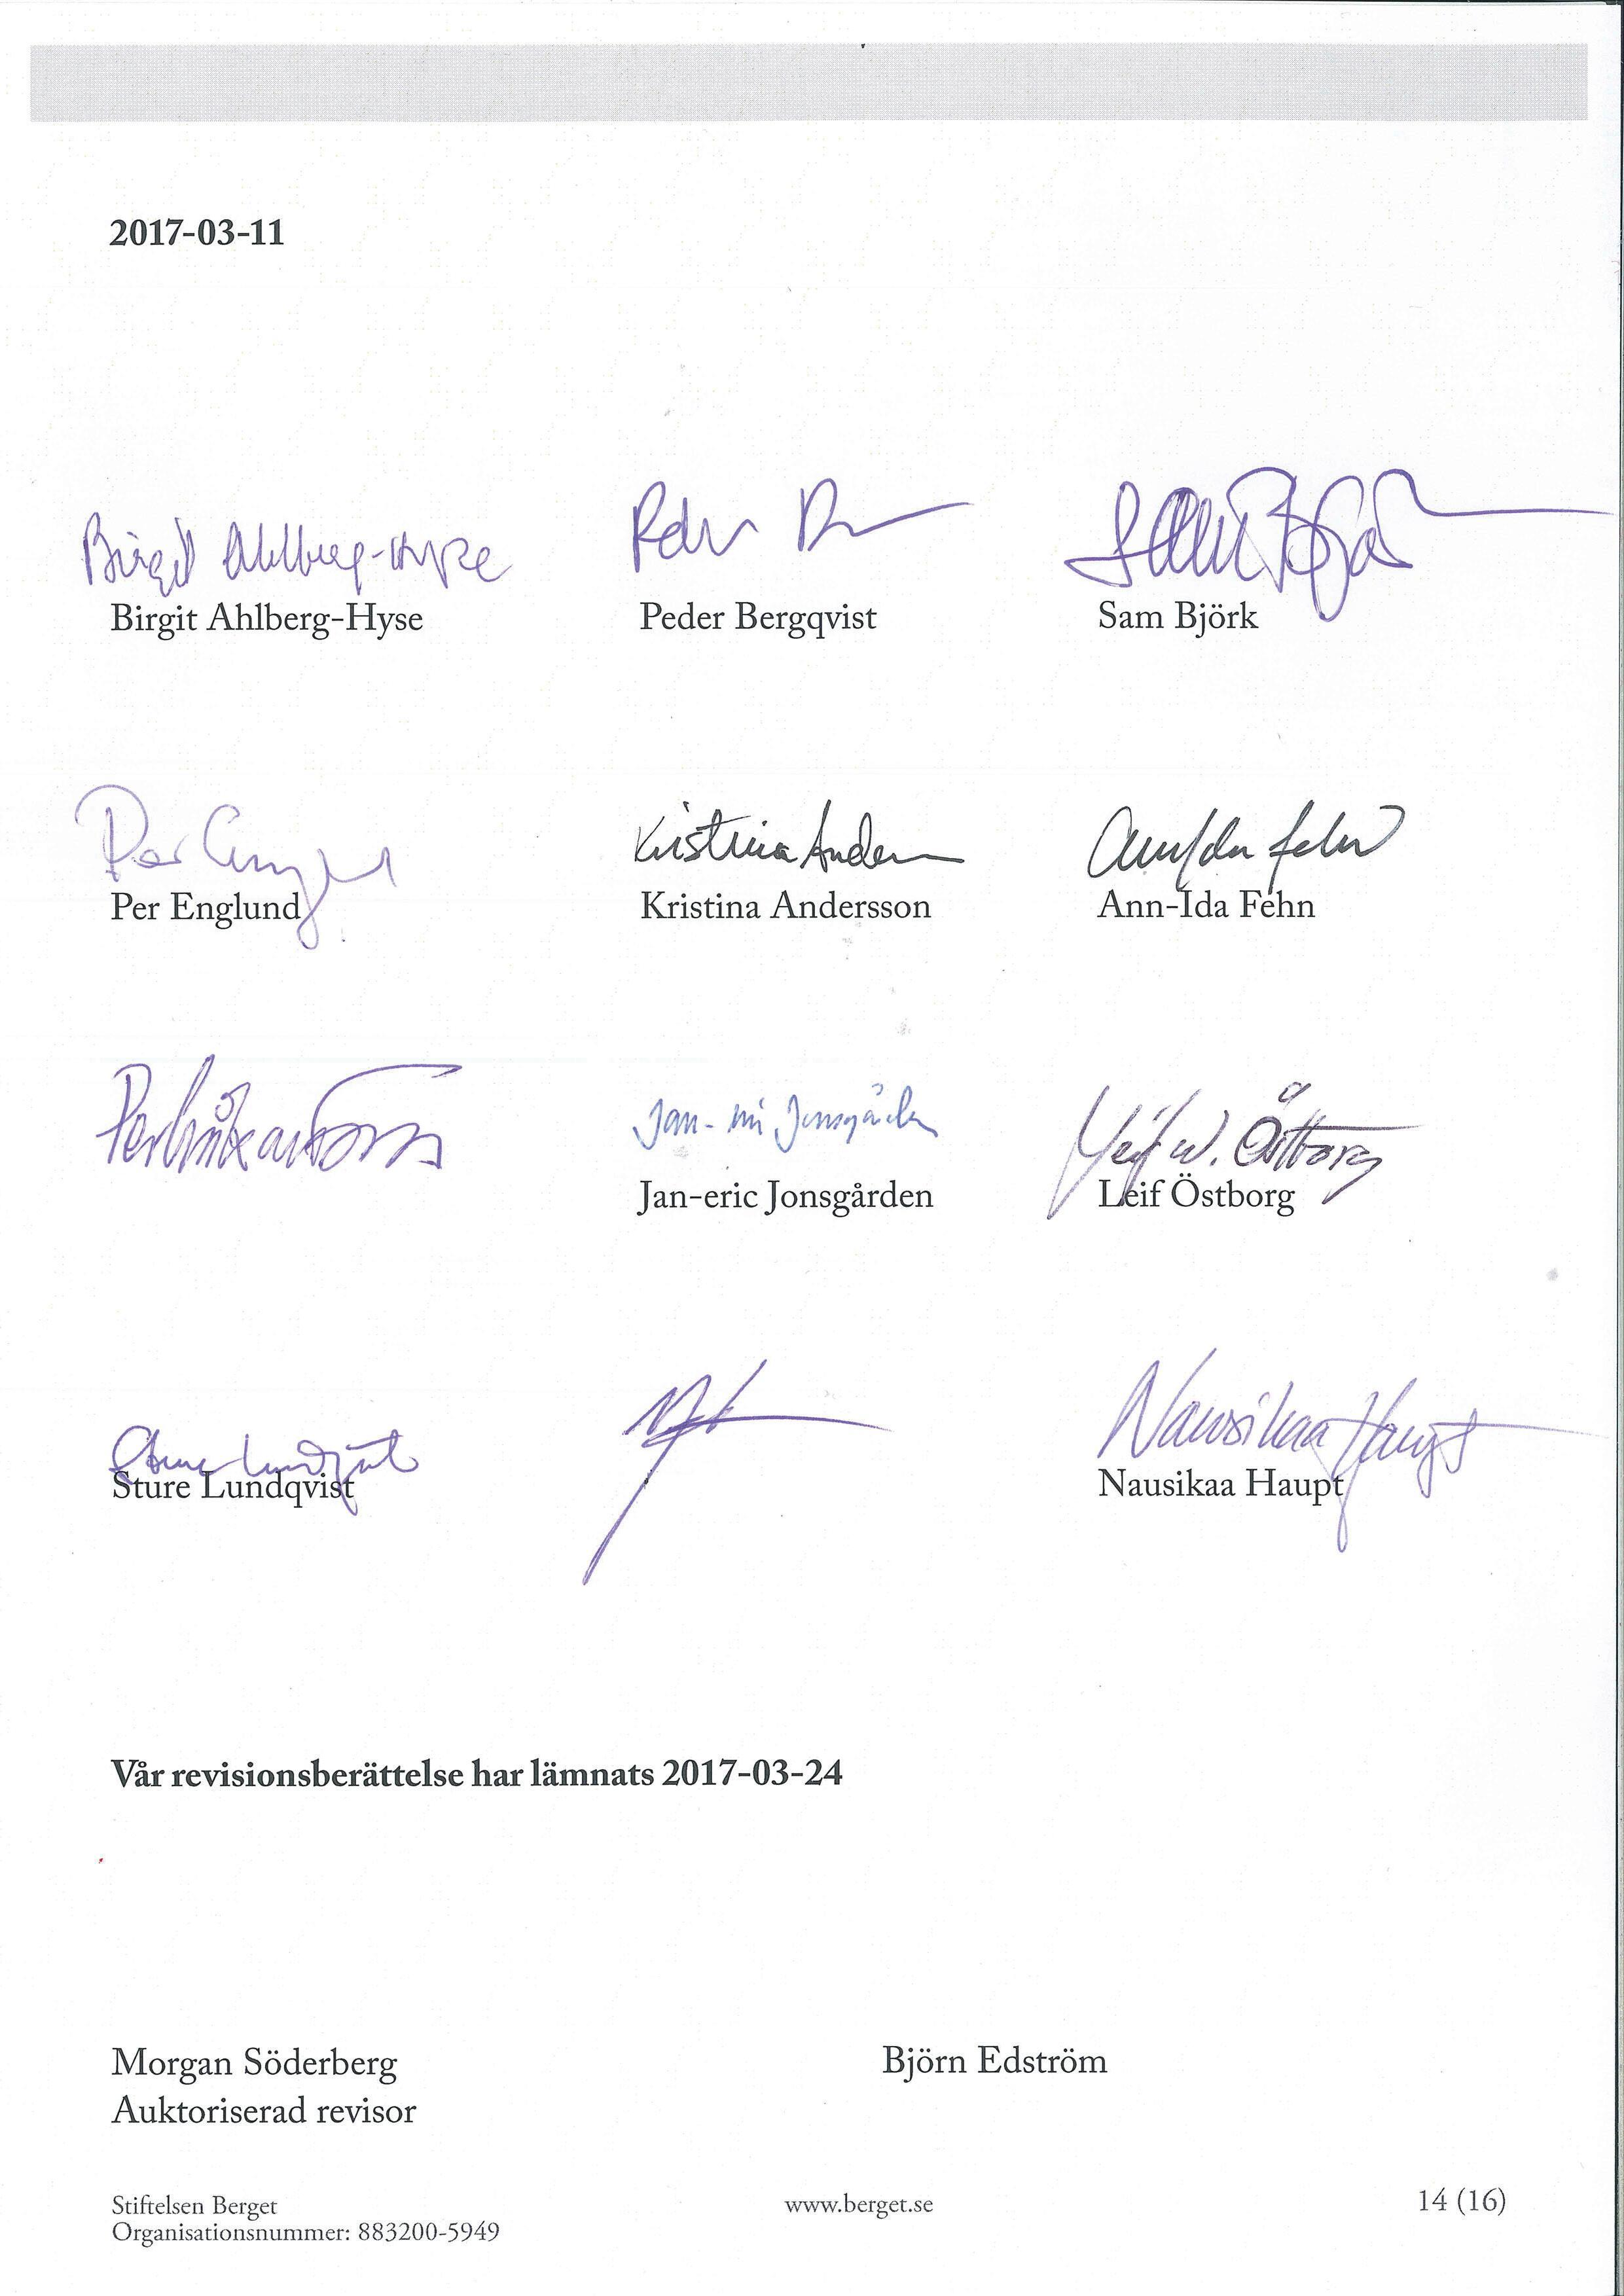 2017-03-11
Birgit Ahlberg-Hyse
Birgit Ahlberg-Hyse Peder Bergqvist Sam Björk
Kristina Andersson Ann-Ida Fehn
Per Englund Kristina Andersson Ann-Ida Fehn
Jan-eric Jonsgården Leif W. Östborg
Jan-eric Jonsgården Leif Östborg
Sture Lundqvist Nausikaa Haupt
Sture Lundqvist Nausikaa Haupt
Vår revisionsberättelse har lämnats 2017-03-24
Morgan Söderberg Björn Edström
Auktoriserad revisor
Stiftelsen Berget www.berget.se 14 (16)
Organisationsnummer: 883200-5949